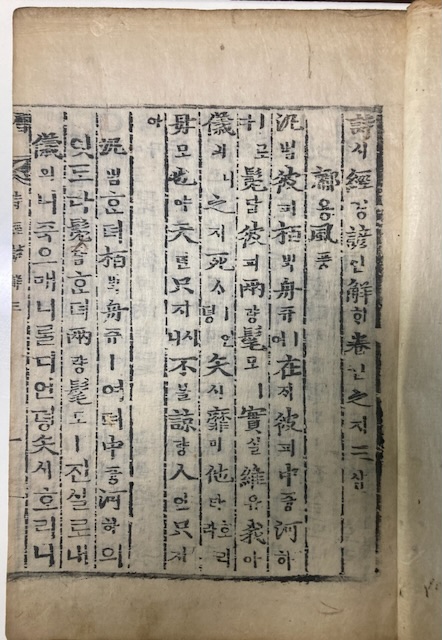 詩시經경諺언解ᄒᆡ卷권之지三삼
鄘용風풍
汎범彼피柏ᄇᆡᆨ舟쥬ㅣ여在ᄌᆡ彼피中듕河하
ㅣ로다髧담彼피兩량髦모ㅣ實실維유我아
儀의니之지死ᄉᆞㅣ언뎡矢시靡미他타호리라
母모也야天텬只지시니不블諒량人인只지
아
汎범ᄒᆞᆫ뎌柏ᄇᆡᆨ舟쥬ㅣ여뎌中듕河하의
잇도다髧담ᄒᆞᆫ뎌兩량髦모ㅣ진실로내
儀의니죽음애니를디언뎡矢시호리니
詩經諺解 三